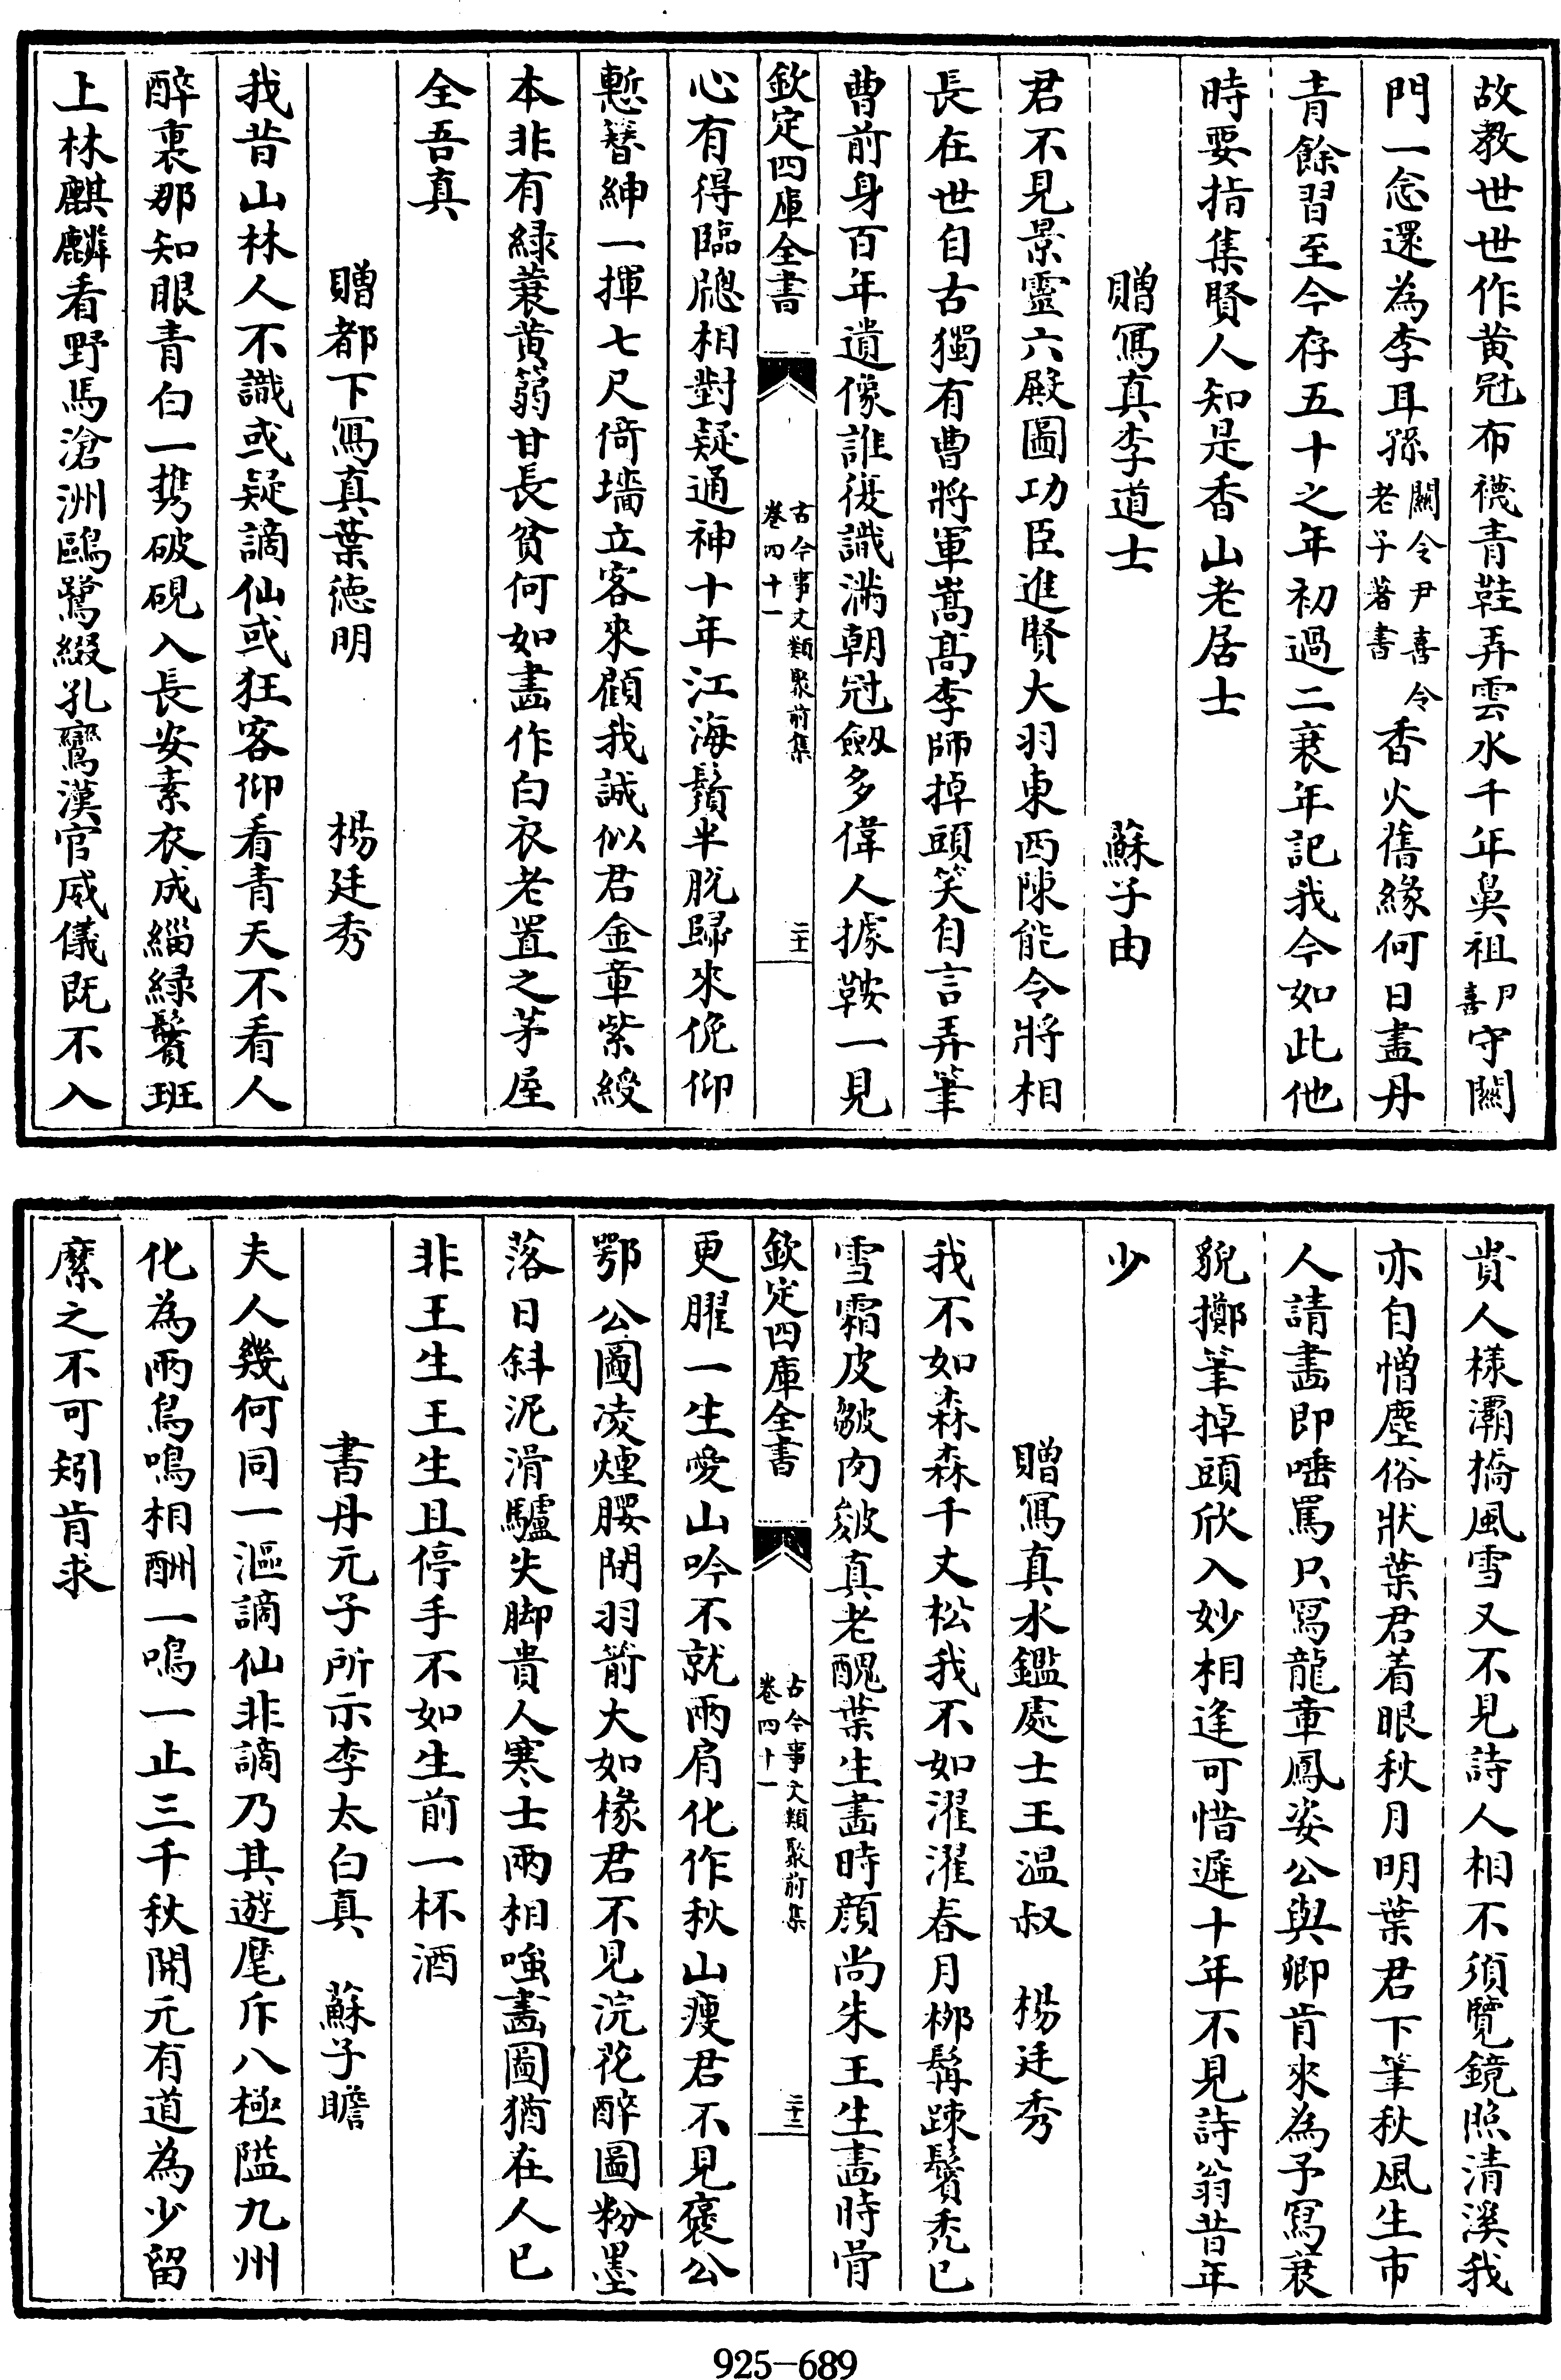 故教世世作黄冠布襪青鞋弄雲水千年鼻祖尹喜守關
門一念還為李耳孫關令尹喜令老子著書香火舊緣何日盡丹
青餘習至今存五十之年初過二衰年記我今如此他
時要指集賢人知是香山老居士
贈寫真李道士 蘇子由
君不見景靈六殿圖功臣進賢大羽東西陳能令將相
長在世自古獨有曹將軍嵩髙李師掉頭笑自言弄筆
曹前身百年遺像誰復識滿朝冠劔多偉人據鞍一見
欽定四庫全書 古今事文類聚前集卷四十一 二十一
心有得臨牕相對疑通神十年江海鬚半脱歸來俛仰
慙簪紳一揮七尺倚墻立客來顧我誠似君金章紫綬
本非有緑蓑黄篛甘長貧何如畫作白衣老置之茅屋
全吾真
贈都下寫真葉徳明 楊廷秀
我昔山林人不識或疑謫仙或狂客仰看青天不看人
醉裏那知眼青白一携破硯入長安素衣成緇緑鬢班
上林麒麟看野馬滄洲鷗鷺綴孔鸞漢官威儀既不入
貴人樣灞橋風雪又不見詩人相不須覽鏡照清溪我
亦自憎塵俗狀葉君着眼秋月明葉君下筆秋風生市
人請畫即唾罵只寫龍章鳳姿公與卿肯來為予寫衰
貌擲筆掉頭欣入妙相逢可惜遲十年不見詩翁昔年
少
贈寫真水鑑處士王温叔 楊廷秀
我不如森森千丈松我不如濯濯春月栁髯踈鬢禿已
雪霜皮皺肉皴真老醜葉生畫時顔尚朱王生畫時骨
欽定四庫全書 古今事文類聚前集卷四十一 二十二
更臞一生愛山吟不就兩肩化作秋山瘦君不見褒公
鄂公圖凌煙腰間羽箭大如椽君不見浣花醉圖粉墨
落日斜泥滑驢失脚貴人寒士兩相嗤畫圖猶在人已
非王生王生且停手不如生前一杯酒
書丹元子所示李太白真 蘇子瞻
夫人幾何同一漚謫仙非謫乃其遊麾斥八極隘九州
化為兩鳥鳴相酬一鳴一止三千秋開元有道為少留
縻之不可矧肯求
925-689